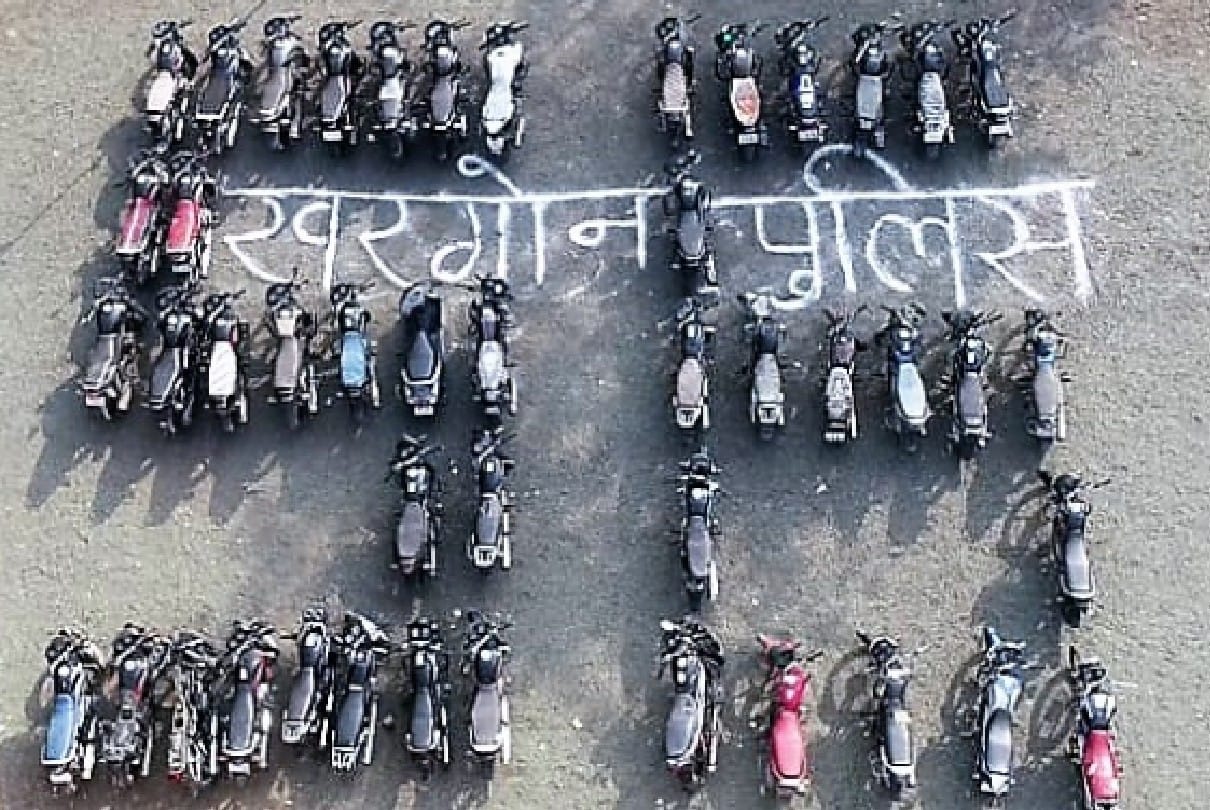 खरगोन पुलिस